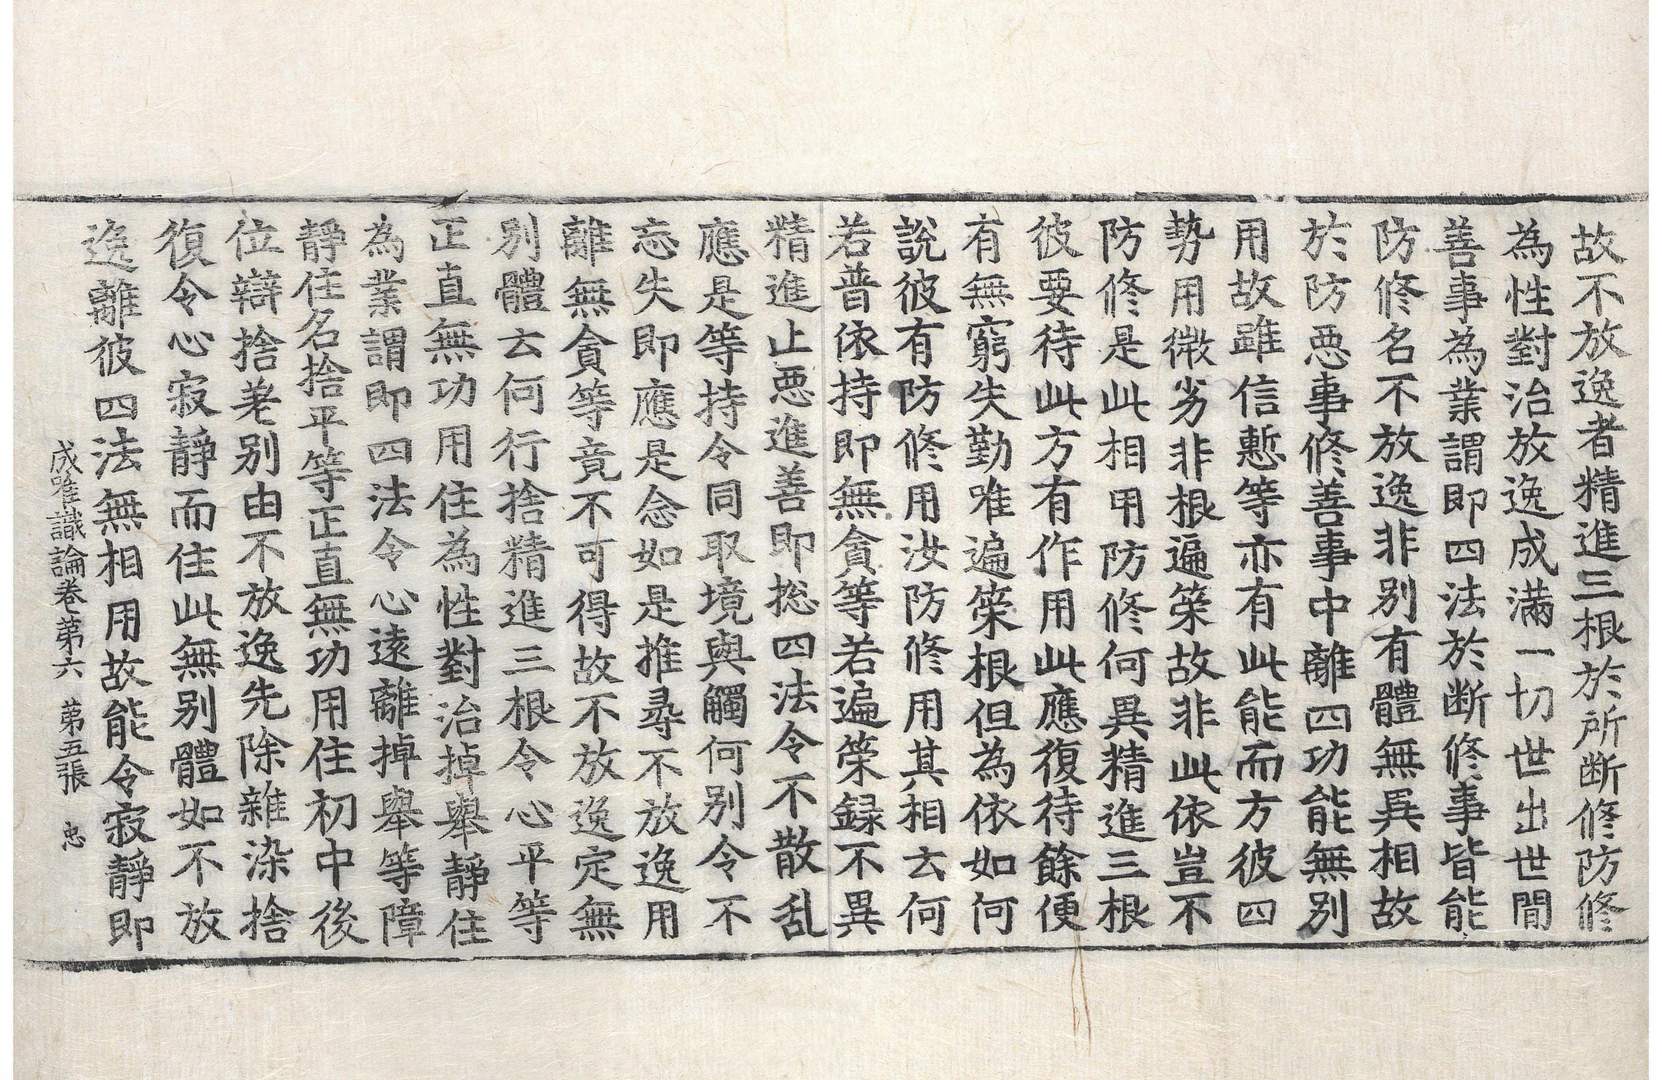 故不放逸者精進三根於所断修防修
為性對治放逸成滿一切世出世間
善事為業謂即四法於断修事皆能
防修名不放逸非別有體無異相故
於防悪事修善事中離四功能無別
用故雖信慙等亦有此能而方彼四
勢用微劣非根遍策故非此依豈不
防修是此相用防修何異精進三根
彼要待此方有作用此應復待餘便
有無窮失勤唯遍策根但為依如何
說彼有防修用汝防修用其相云何
若普依持即無貪等若遍策録不異
精進止悪進善即捴四法令不散乱
應是等持令同取境與觸何別令不
忘失即應是念如是推尋不放逸用
離無貪等竟不可得故不放逸定無
別體云何行捨精進三根令心平等
正直無功用住為性對治掉舉靜住
為業謂即四法令心遠離掉舉等障
靜住名捨平等正直無功用住初中後
位辯捨差別由不放逸先除雜染捨
復令心寂靜而住此無別體如不放
逸離彼四法無相用故能令寂靜即
成唯識論卷第六 第五張 忠